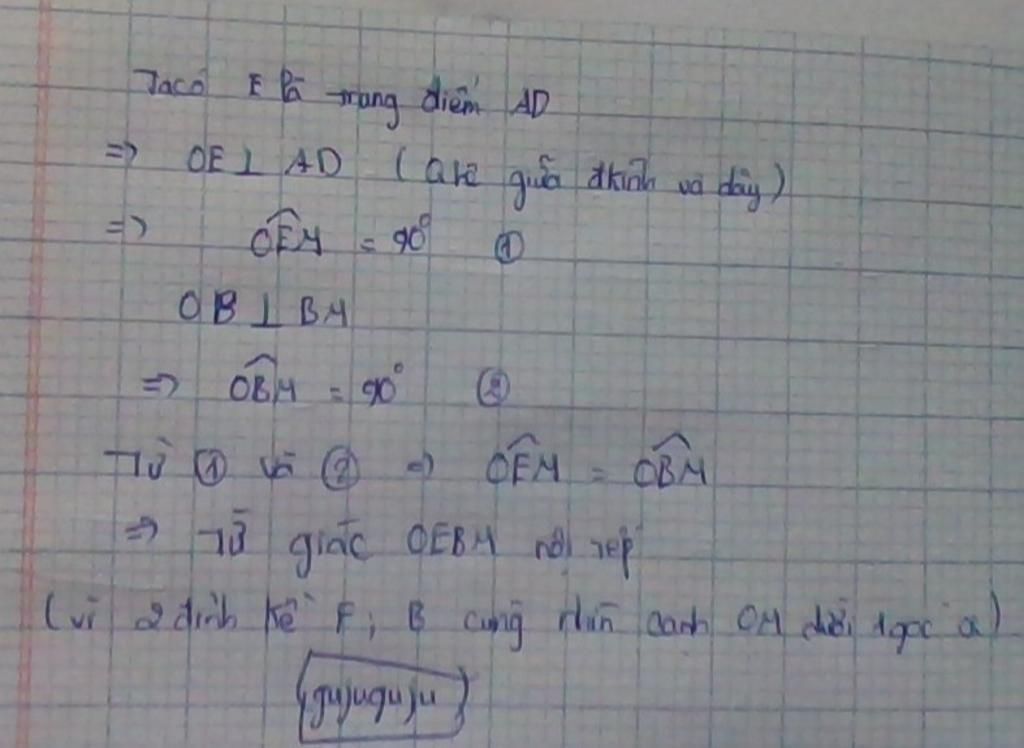 Ta có E là trung điểm AD
=> OE ⊥ AD (qhệ giữa đkính và dây)
=> OEM = 90° ①
OB ⊥ BM
=> OBM = 90° ②
Từ ① và ② => OEM = OBM
=> Tứ giác OEBM nội tiếp
(vì 2 đỉnh kề E; B cùng nhìn cạnh OM dưới 1 góc α)
gujuguju